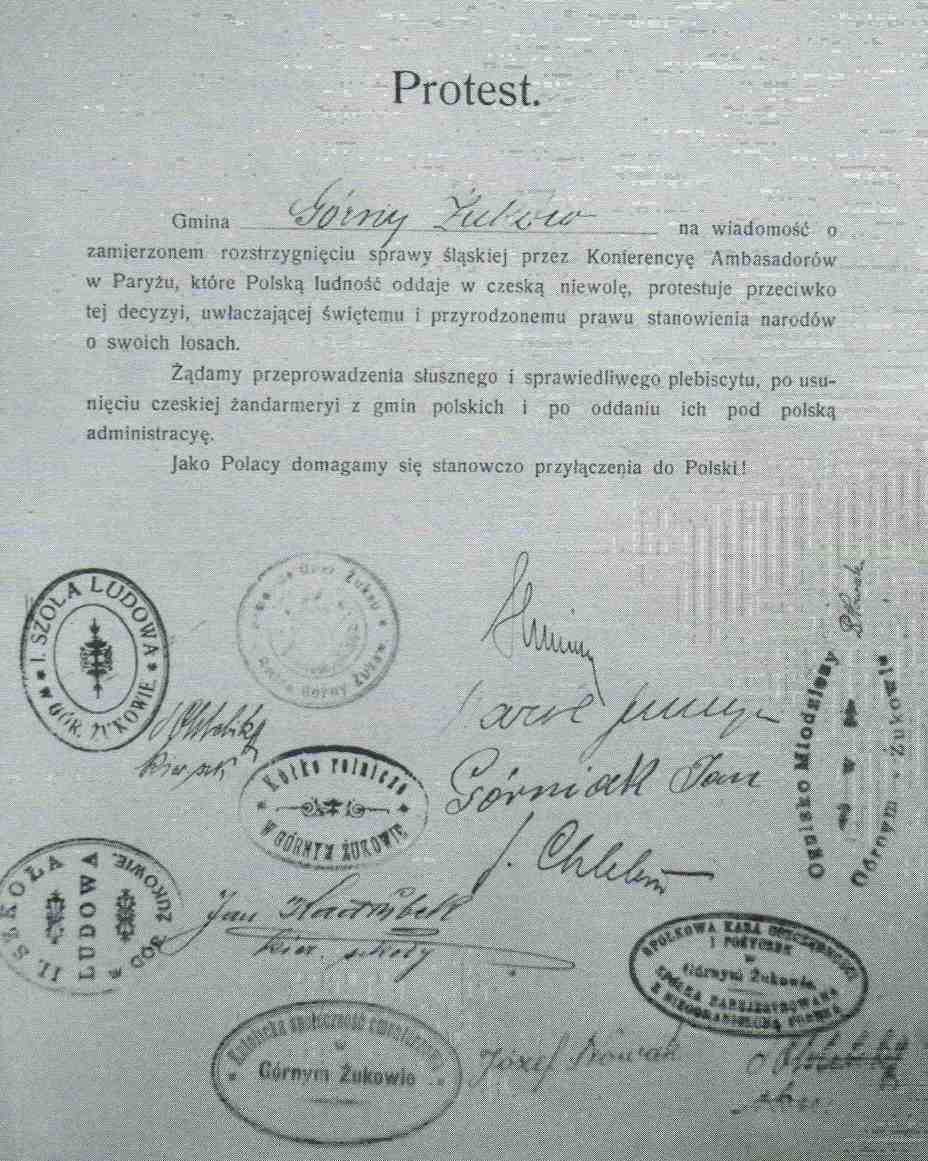 Protest.
Gmina Górny Żuków na wiadomość o
zamierzonem rozstrzygnięciu sprawy śląskiej przez Konferencyę Ambasadorów
w Paryżu, które Polską ludność oddaje w czeską niewolę, protestuje przeciwko
tej decyzyi, uwłaczającej świętemu i przyrodzonemu prawu stanowienia narodów
o swoich losach.
Żądamy przeprowadzenia słusznego i sprawiedliwego plebiscytu, po usu-
nięciu czeskiej żandarmeryi z gmin polskich i po oddaniu ich pod polską
administracyę.
Jako Polacy domagamy się stanowczo przyłączenia do Polski!
I. SZOLA LUDOWA
w GÓR. ŻUKOWIE.
Ober Żukau
Górny Żuków
Karol
Górniak Jan
Kółko rolnicze
W GÓRNYM ŻUKOWIE
Ognisko Młodzieży
w
Górnym-Żukowie
J.
II. SZKOŁA
LUDOWA
w GÓR. ŻUKOWIE
Jan
kier. szkoły
SPÓŁKOWA KASA OSZCZĘDNOŚCI
I POŻYCZEK
w
Górnym Żukowie,
SPÓŁKA ZAREJESTROWANA
Z NIEOGRANICZONĄ PORĘKĄ
Katolicka społeczność cmentarzowa
w
Górnym Żukowie
Józef Nowak